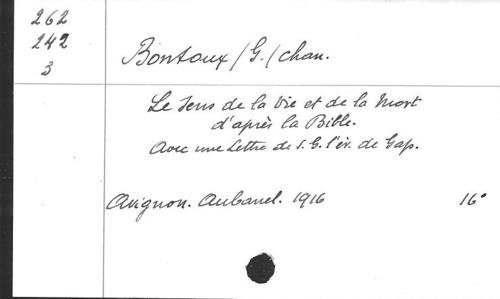 262
242
3
Bontoux /G./ chan.
Le Sens de la Vie et de la Mort
d'après la Bible.
Avec une Lettre de S. G. l'év. de Gap.
Avignon. Aubanel. 1916 16°